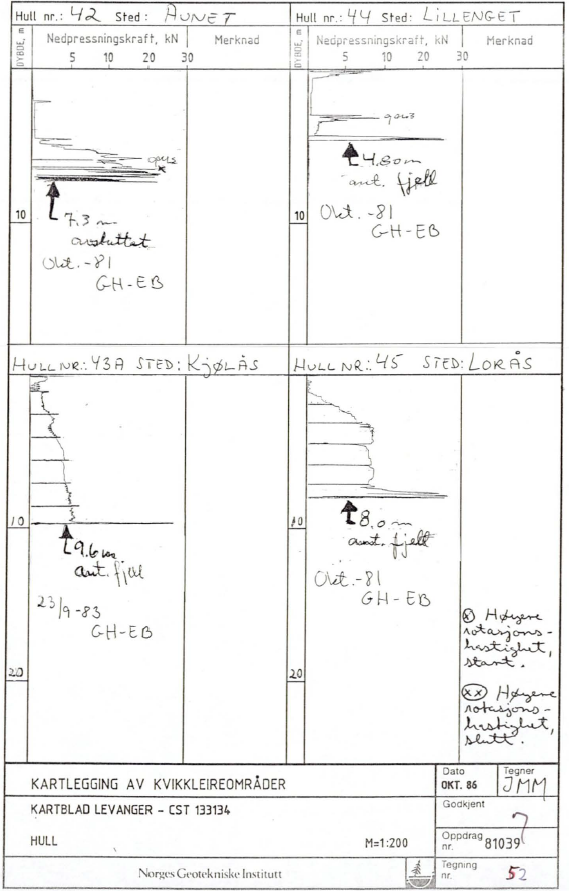 Hull nr.: 42 Sted: AUNET
DYBDE, m
Nedpressningskraft, kN
Merknad
5 10 20 30
grus
x
10
7.3 m
avsluttet
Okt. -81
GH-EB
Hull nr.: 44 Sted: LILLENGET
DYBDE, m
Nedpressningskraft, kN
Merknad
5 10 20 30
grus
4.80m
ant. fjell
10
Okt. -81
GH-EB
HULL NR.: 43A STED: KJØLÅS
10
9.6 m
ant. fjell
23/9-83
GH-EB
20
HULL NR.: 45 STED: LORÅS
10
8.0 m
ant. fjell
Okt. -81
GH-EB
20
(x) Høyere
rotasjons-
hastighet,
start.
(xx) Høyere
rotasjons-
hastighet,
slutt.
KARTLEGGING AV KVIKKLEIREOMRÅDER
KARTBLAD LEVANGER - CST 133134
HULL M=1:200
Dato
OKT. 86
Tegner
JMM
Godkjent
Oppdrag nr. 81039
Norges Geotekniske Institutt
Tegning nr. 52